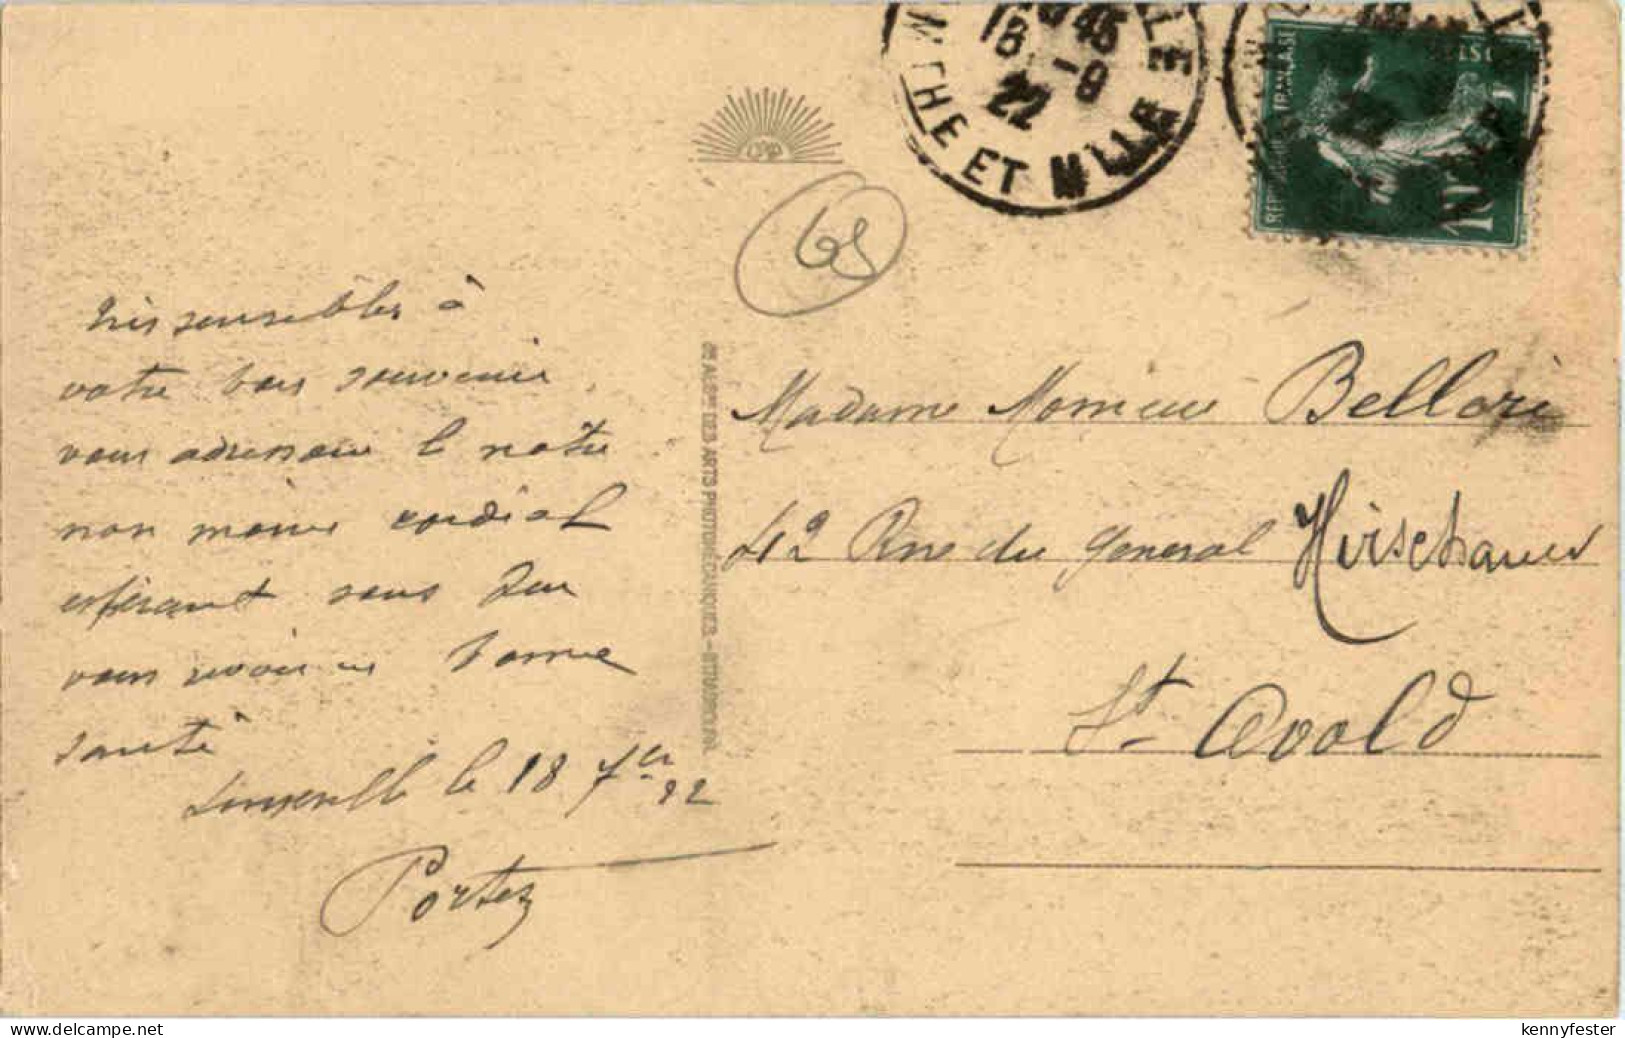 Très sensibles à
votre bon souvenir
vous adressons le notre
non moins cordial
espérant vous
vous revoir en bonne
santé
le 18 7bre 22
Portez
65
LLE
45
18 -9
22
MTHE ET MLLE
REPUBLIQUE FRANÇAISE
10
Madame Monsieur Bellori
42 Rue du General Hirschauer
St Avold
CIE ALSACIENNE DES ARTS PHOTOMÉCANIQUES - STRASBOURG
kennyfester
https://www.delcampe.net